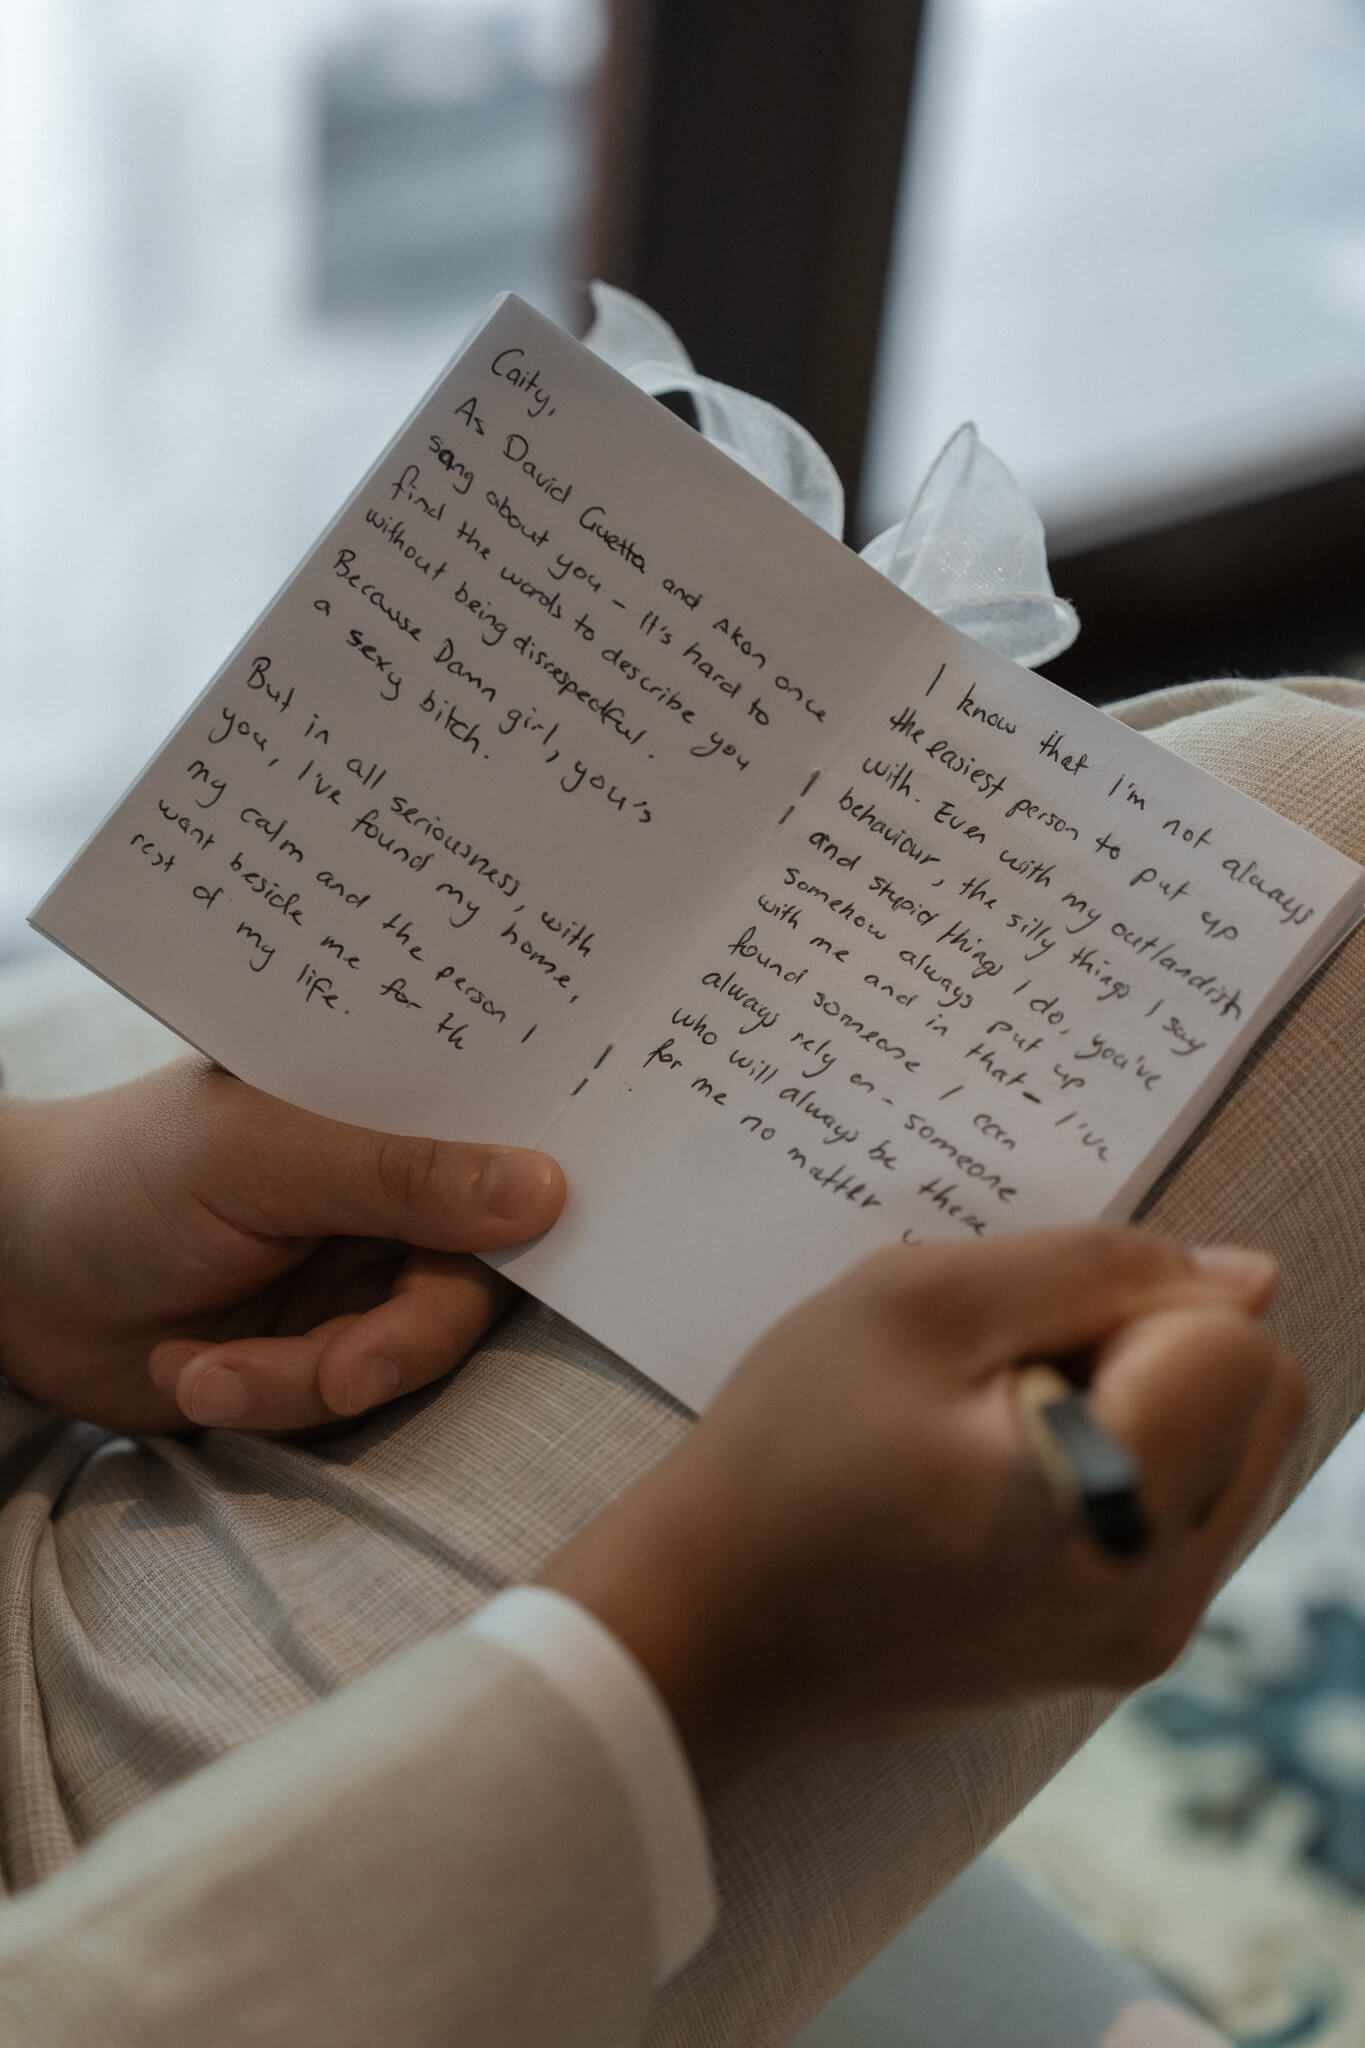 Caity,
As David Guetta and Akon once
sang about you - It's hard to
find the words to describe you
without being disrespectful.
Because Damn girl, you's
a sexy bitch.
But in all seriousness, with
you, I've found my home,
my calm and the person I
want beside me for th
rest of my life.
I know that I'm not always
the easiest person to put up
with. Even with my outlandish
behaviour, the silly things I say
and stupid things I do, you've
somehow always put up
with me and in that - I've
found someone I can
always rely on - someone
who will always be there
for me no matter